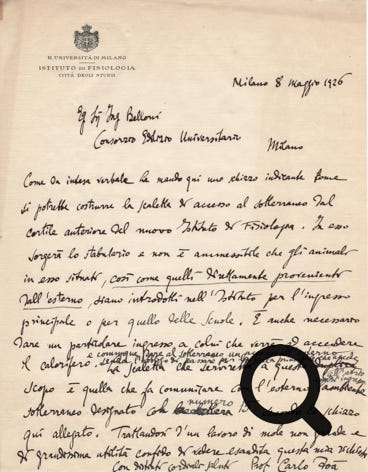 R. UNIVERSITÀ DI MILANO
ISTITUTO DI FISIOLOGIA
CITTÀ DEGLI STUDI
Milano 8 maggio 1926
Eg Sig Ing Belloni
Consorzio Edilizio Universitario
Milano
Come da intesa verbale Le mando qui uno schizzo indicante come
si potrebbe costruire la scaletta di accesso al sotterraneo dal
cortile anteriore del nuovo Istituto di Fisiologia. In esso
sorgerà lo stabulario e non è ammissibile che gli animali
in esso situati, così come quelli direttamente provenienti
dall'esterno, siano introdotti nell'Istituto per l'ingresso
principale o per quello delle Scuole. È anche necessario
dare un particolare ingresso a colui che verrà ad accedere
il calorifero. e comunque dare al sotterraneo un
La scaletta che servirebbe a questo
scopo è quella che fa comunicare con l'esterno
sotterraneo designato col numero lo schizzo
qui allegato. Trattandosi d'un lavoro di mole non grande e
di grandissima utilità confido di vedere esaudita questa mia richiesta
Con distinti cordiali saluti Prof. Carlo Foà